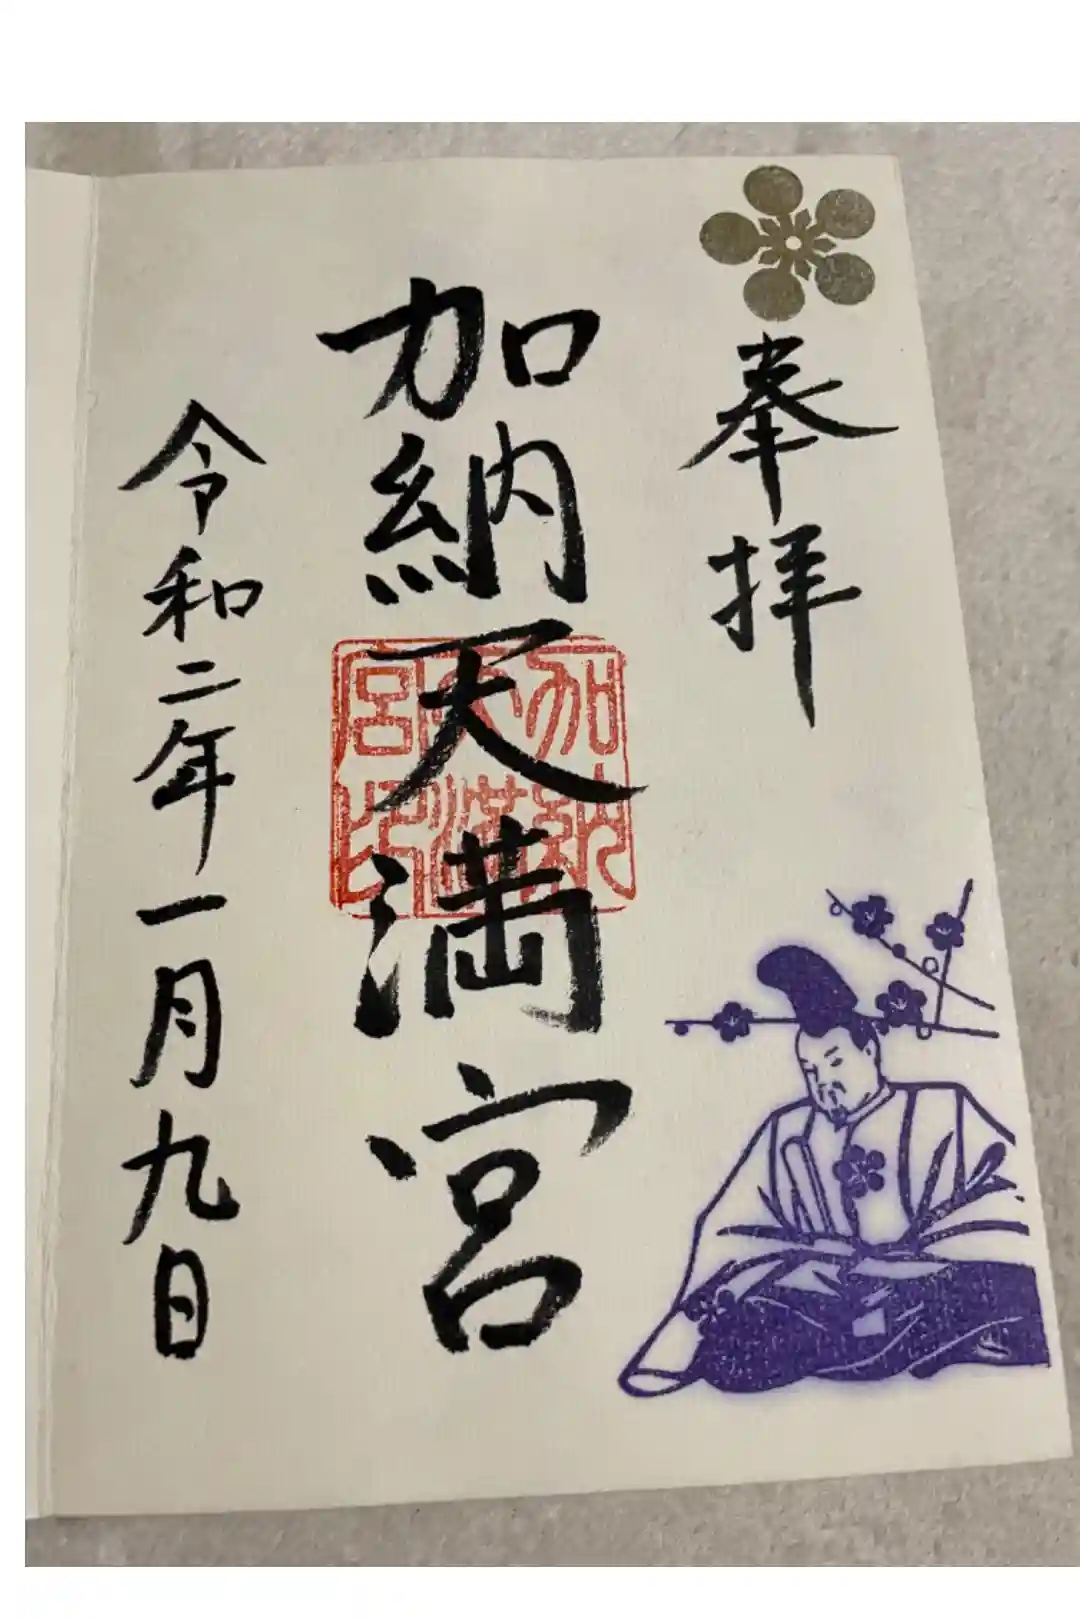 奉拝
加納天満宮
加納天満宮印
令和二年一月九日